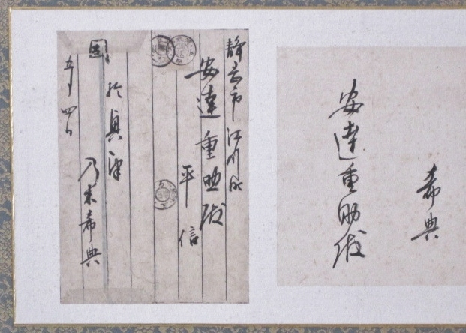 静岡市江川町
安達重助殿
平信
於興津
乃木希典
五月四日
希典
安達重助殿